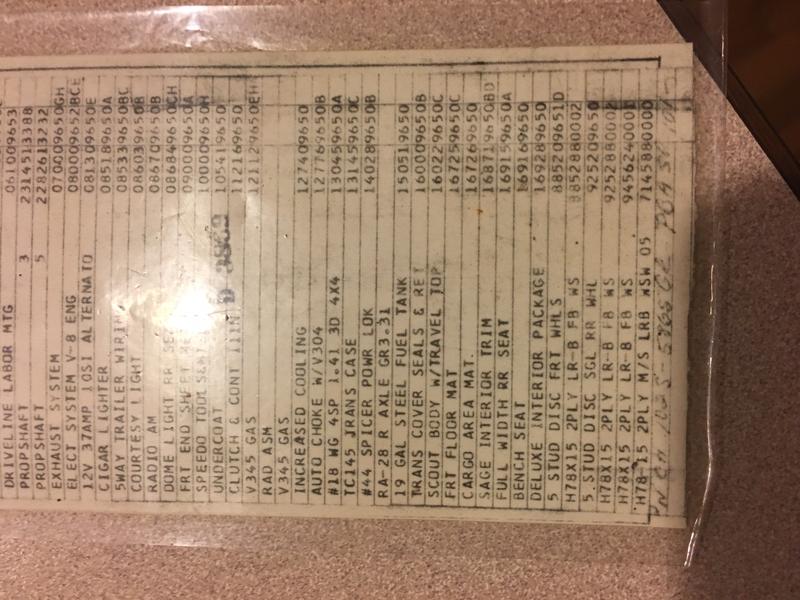 DRIVELINE LABOR MTG 061009653
PROPSHAFT 3 2314513388
PROPSHAFT 5 2282613232
EXHAUST SYSTEM 070009650GH
ELECT SYSTEM V-8 ENG 080009652BCE
12V 37AMP 10SI ALTERNATO 081309650E
CIGAR LIGHTER 085189650A
5WAY TRAILER WIRIN 085339650BC
COURTESY LIGHT 086039650B
RADIO AM 086709650B
DOME LIGHT RR SE 086849650CH
FRT END SHEET 090009650A
SPEEDO TOOL 100009650H
UNDERCOAT 105419650
CLUTCH & CONT 11IN 112169650
V345 GAS 121129650EH
RAD ASM
V345 GAS
INCREASED COOLING 127409650
AUTO CHOKE W/V304 127769650B
#18 WG 4SP 1.41 3D 4X4 130459650A
TC145 TRANS CASE 131459650C
#44 SPICER POWR LOK 140289650B
RA-28 R AXLE GR3.31
19 GAL STEEL FUEL TANK 150519650
TRANS COVER SEALS & RET 160009650B
SCOUT BODY W/TRAVEL TOP 160229650C
FRT FLOOR MAT 167259650C
CARGO AREA MAT. 167269650
SAGE INTERIOR TRIM 168719650BD
FULL WIDTH RR SEAT 169159650A
BENCH SEAT 169169650
DELUXE INTERIOR PACKAGE 169289650
5 STUD DISC FRT WHLS 885209651D
H78X15 2PLY LR-B FB WS 8852880002
5 STUD DISC SGL RR WHL 925209650
H78X15 2PLY LR-B FB WS 9252880002
H78X15 2PLY LR-B FB WS 9456240001
H78-15 2PLY M/S LRB WSW 05 7145880000